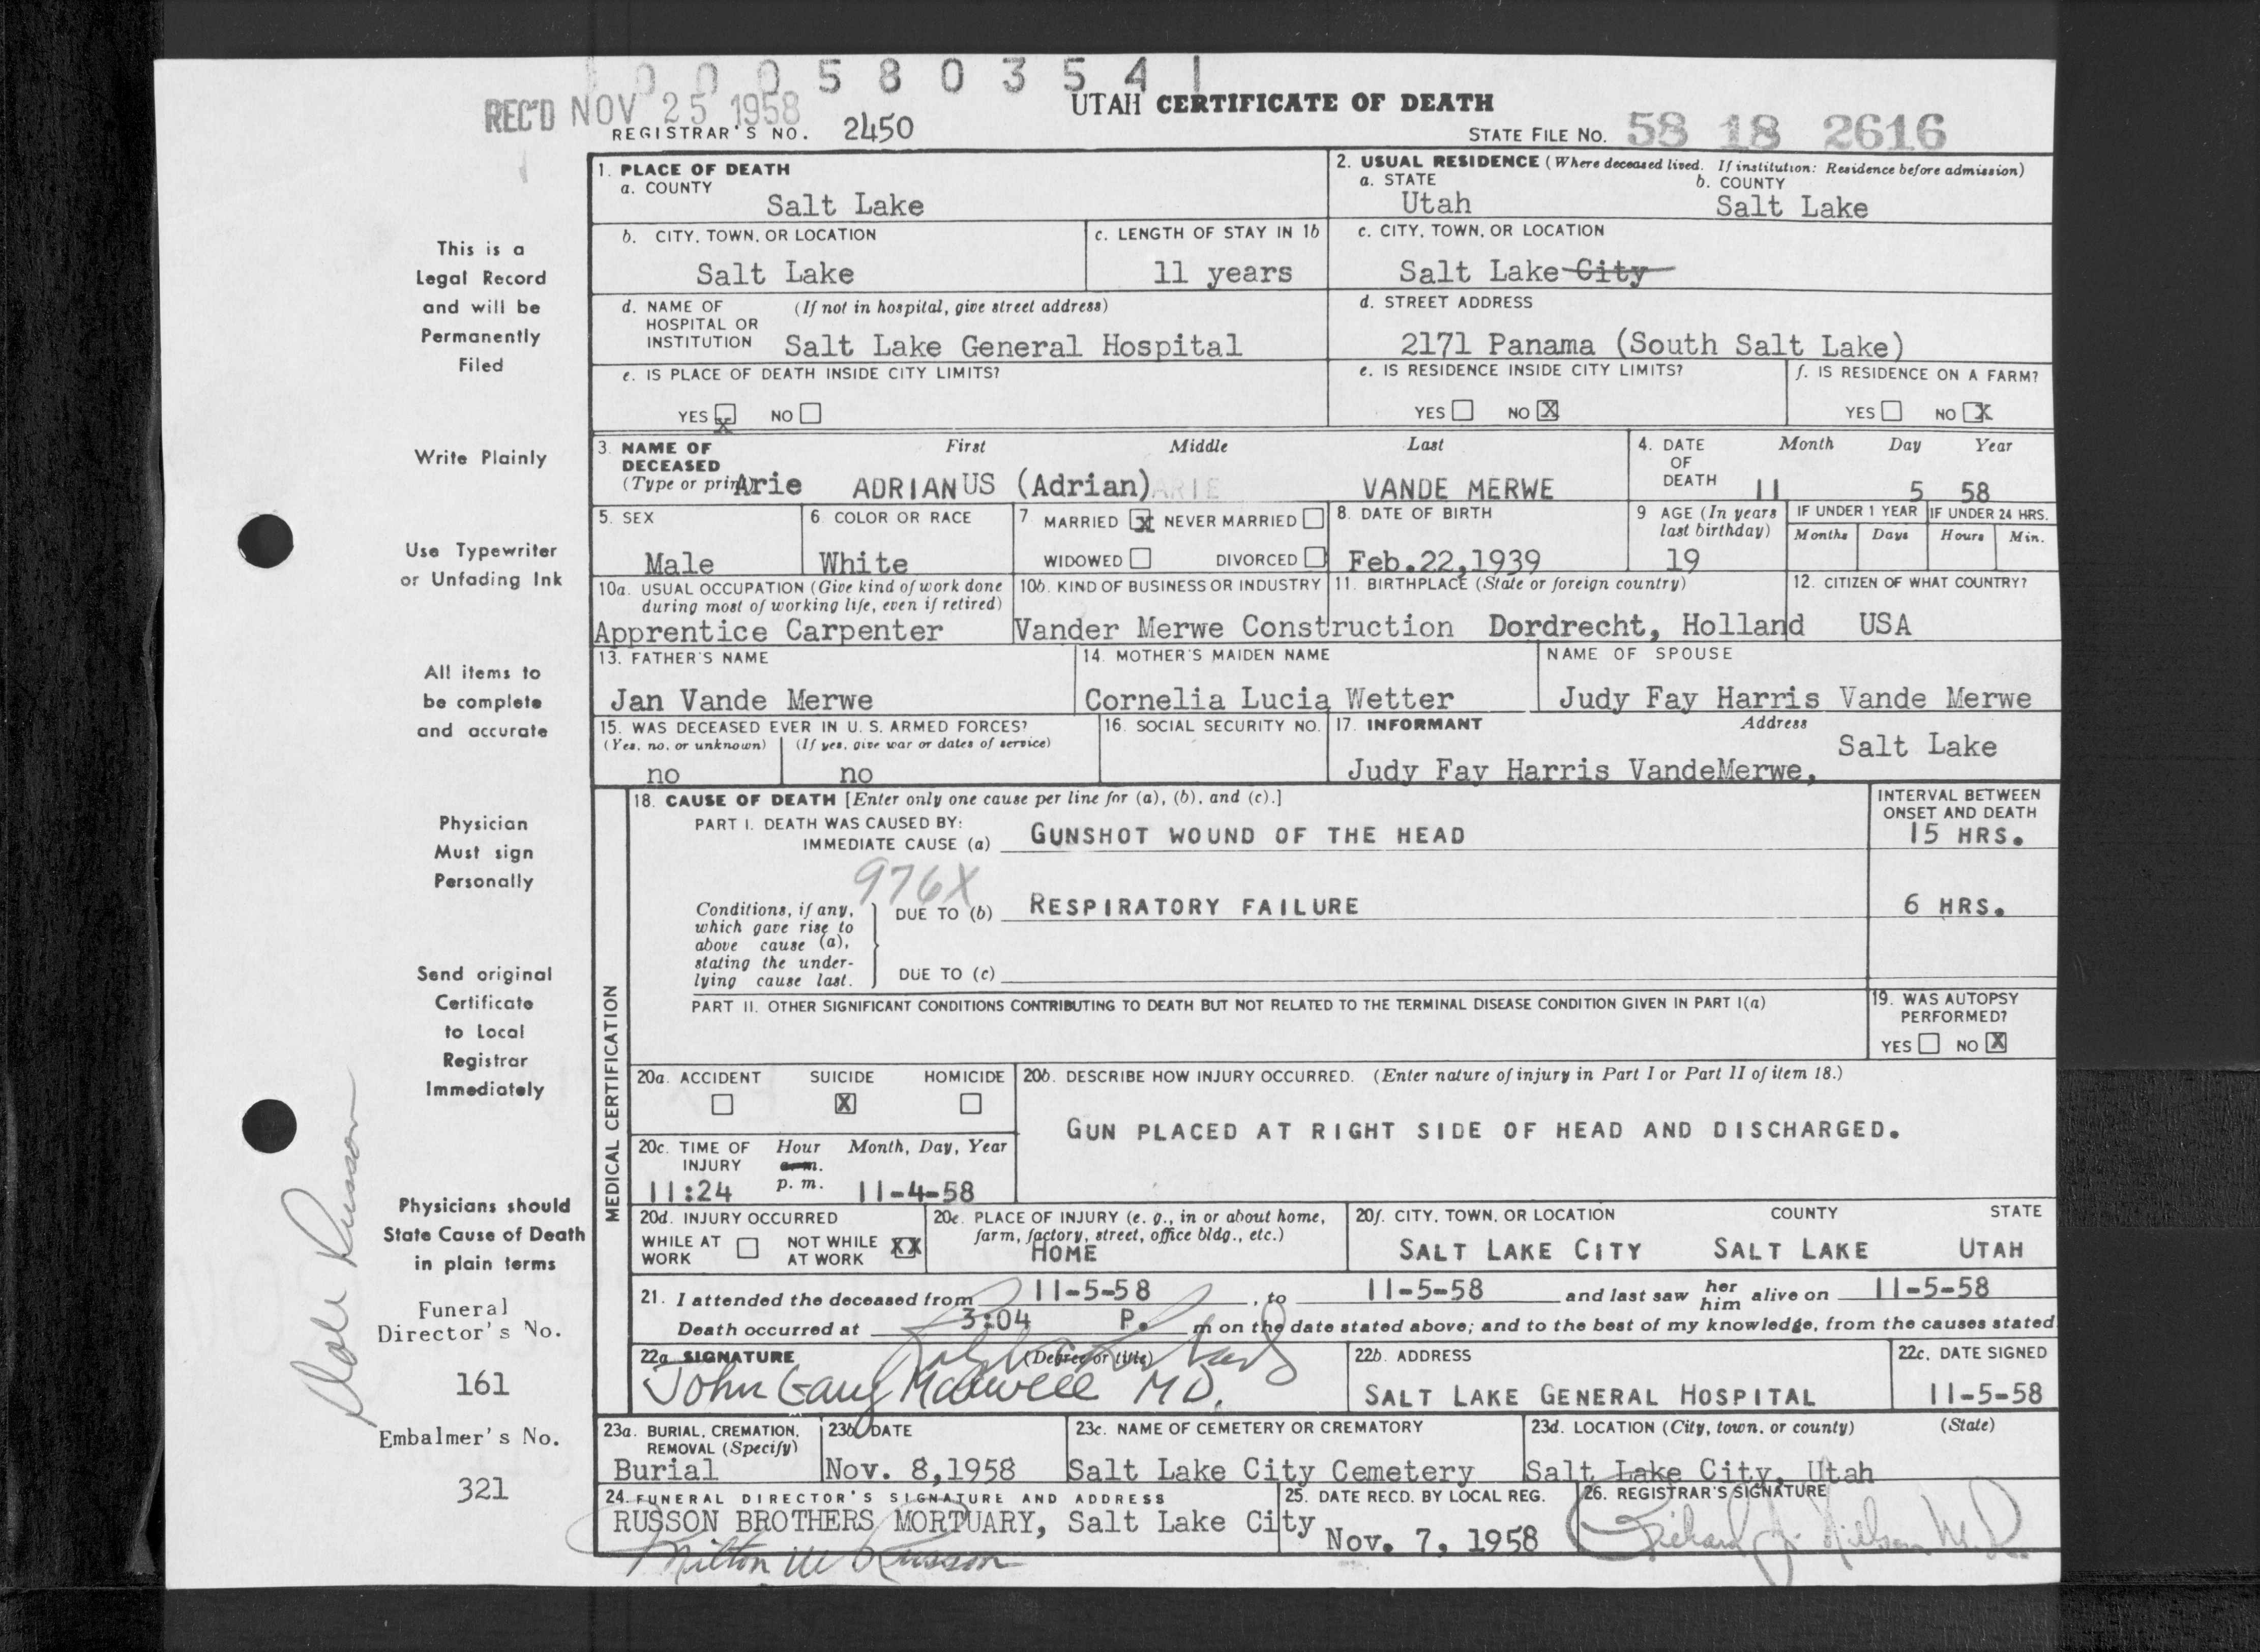 1 0 0 0 5 8 0 3 5 4 1
REC'D NOV 25 1958
UTAH CERTIFICATE OF DEATH
REGISTRAR'S NO. 2450
STATE FILE NO. 58 18 2616
This is a
Legal Record
and will be
Permanently
Filed
Write Plainly
Use Typewriter
or Unfading Ink
All items to
be complete
and accurate
Physician
Must sign
Personally
Send original
Certificate
to Local
Registrar
Immediately
Physicians should
State Cause of Death
in plain terms
Funeral
Director's No.
161
Embalmer's No.
321
1. PLACE OF DEATH
a. COUNTY
Salt Lake
2. USUAL RESIDENCE (Where deceased lived. If institution: Residence before admission)
a. STATE b. COUNTY
Utah Salt Lake
b. CITY, TOWN, OR LOCATION
Salt Lake
c. LENGTH OF STAY IN 1b
11 years
c. CITY, TOWN, OR LOCATION
Salt Lake City
d. NAME OF (If not in hospital, give street address)
HOSPITAL OR
INSTITUTION Salt Lake General Hospital
d. STREET ADDRESS
2171 Panama (South Salt Lake)
e. IS PLACE OF DEATH INSIDE CITY LIMITS?
YES X NO
e. IS RESIDENCE INSIDE CITY LIMITS?
YES NO X
f. IS RESIDENCE ON A FARM?
YES NO X
3. NAME OF First Middle Last
DECEASED
(Type or print) Arie ADRIANUS (Adrian) ARIE VANDE MERWE
4. DATE Month Day Year
OF
DEATH 11 5 58
5. SEX
Male
6. COLOR OR RACE
White
7. MARRIED X NEVER MARRIED
WIDOWED DIVORCED
8. DATE OF BIRTH
Feb.22,1939
9 AGE (In years
last birthday)
19
IF UNDER 1 YEAR IF UNDER 24 HRS.
Months Days Hours Min.
10a. USUAL OCCUPATION (Give kind of work done
during most of working life, even if retired)
Apprentice Carpenter
10b. KIND OF BUSINESS OR INDUSTRY
Vander Merwe Construction
11. BIRTHPLACE (State or foreign country)
Dordrecht, Holland
12. CITIZEN OF WHAT COUNTRY?
USA
13. FATHER'S NAME
Jan Vande Merwe
14. MOTHER'S MAIDEN NAME
Cornelia Lucia Wetter
NAME OF SPOUSE
Judy Fay Harris Vande Merwe
15. WAS DECEASED EVER IN U. S. ARMED FORCES?
(Yes, no, or unknown) (If yes, give war or dates of service)
no no
16. SOCIAL SECURITY NO.
17. INFORMANT Address
Salt Lake
Judy Fay Harris VandeMerwe,
MEDICAL CERTIFICATION
18. CAUSE OF DEATH [Enter only one cause per line for (a), (b), and (c).]
PART I. DEATH WAS CAUSED BY:
IMMEDIATE CAUSE (a) GUNSHOT WOUND OF THE HEAD
INTERVAL BETWEEN
ONSET AND DEATH
15 HRS.
976X
Conditions, if any,
which gave rise to
above cause (a),
stating the under-
lying cause last.
DUE TO (b) RESPIRATORY FAILURE
6 HRS.
DUE TO (c)
PART II. OTHER SIGNIFICANT CONDITIONS CONTRIBUTING TO DEATH BUT NOT RELATED TO THE TERMINAL DISEASE CONDITION GIVEN IN PART I(a)
19. WAS AUTOPSY
PERFORMED?
YES NO X
20a. ACCIDENT SUICIDE HOMICIDE
X
20b. DESCRIBE HOW INJURY OCCURRED. (Enter nature of injury in Part I or Part II of item 18.)
GUN PLACED AT RIGHT SIDE OF HEAD AND DISCHARGED.
20c. TIME OF Hour Month, Day, Year
INJURY a.m.
11:24 p. m. 11-4-58
20d. INJURY OCCURRED
WHILE AT NOT WHILE XX
WORK AT WORK
20e. PLACE OF INJURY (e. g., in or about home,
farm, factory, street, office bldg., etc.)
HOME
20f. CITY, TOWN, OR LOCATION COUNTY STATE
SALT LAKE CITY SALT LAKE UTAH
21. I attended the deceased from 11-5-58, to 11-5-58 and last saw her him alive on 11-5-58
Death occurred at 3:04 P. m on the date stated above; and to the best of my knowledge, from the causes stated
22a SIGNATURE (Degree or title)
John Gary Maxwell M.D.
22b. ADDRESS
SALT LAKE GENERAL HOSPITAL
22c. DATE SIGNED
11-5-58
23a. BURIAL, CREMATION,
REMOVAL (Specify)
Burial
23b. DATE
Nov. 8,1958
23c. NAME OF CEMETERY OR CREMATORY
Salt Lake City Cemetery
23d. LOCATION (City, town, or county) (State)
Salt Lake City, Utah
24. FUNERAL DIRECTOR'S SIGNATURE AND ADDRESS
RUSSON BROTHERS MORTUARY, Salt Lake City
Milton W Russon
25. DATE RECD. BY LOCAL REG.
Nov. 7, 1958
26. REGISTRAR'S SIGNATURE
Richard J. Nielsen M.D.
Dale Russon